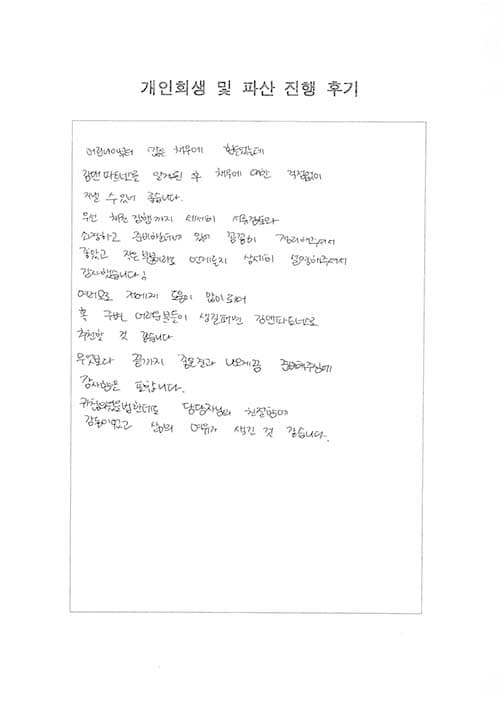 개인회생 및 파산 진행 후기
어린나이부터 많은 채무에 힘들었는데
김앤파트너스를 알게된 후 채무에 대한 걱정없이
지낼 수 있어 좋습니다.
우선 회생 진행까지 세세히 서류검토와
소명하고 준비하는데에 있어 꼼꼼히 정리해주셔서
좋았고 작은 부분이라도 언제든지 상세히 설명해주셔서
감사했습니다;
여러모로 저에게 도움이 많이 되어
혹 주변 어려운분들이 생길때면 김앤파트너스로
추천할 것 같습니다
무엇보다 끝까지 좋은결과 나오게끔 준비해주심에
감사함을 표합니다.
귀찮았었을법한데도 담당자님의 친절함에
감동이었고 삶의 여유가 생긴 것 같습니다.